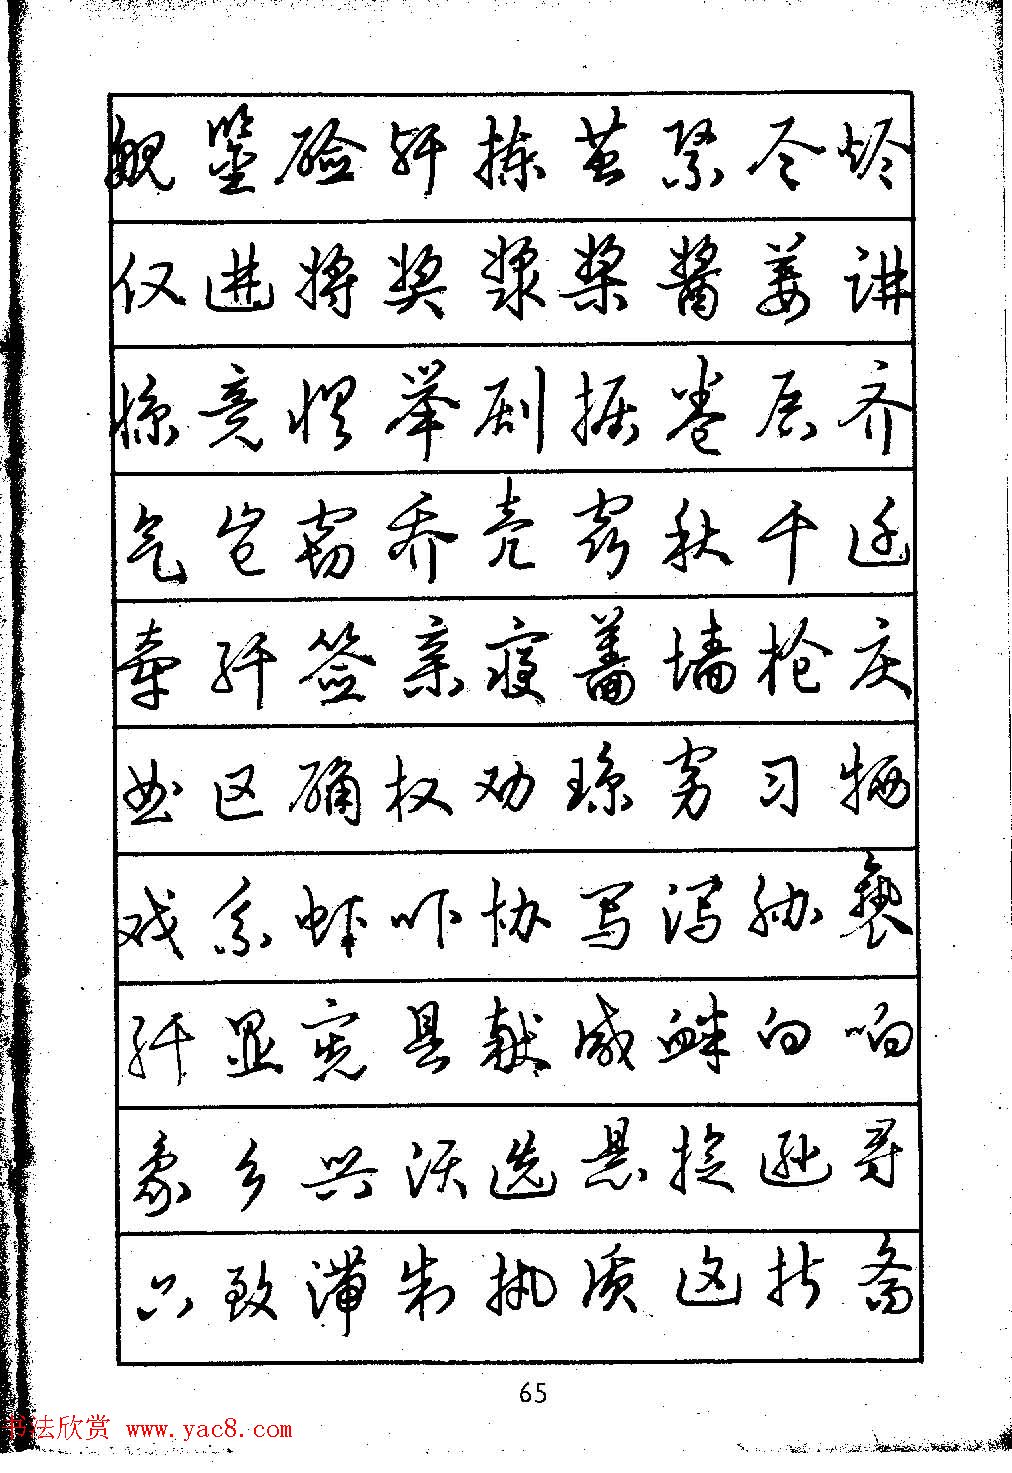 舰鉴硷歼拣茧紧尽烬
仅进将奖浆桨酱姜讲
惊竞惧举剧据卷居齐
气岂窃乔壳窍秋千迁
牵纤签亲寝蔷墙枪庆
曲区确权劝琼穷习牺
戏系蚌吓协写泻胁亵
纤显宪县献咸衅向响
象乡兴沃选悬旋逊寻
只致滞制执质这折斋
65
书法欣赏 www.yac8.com